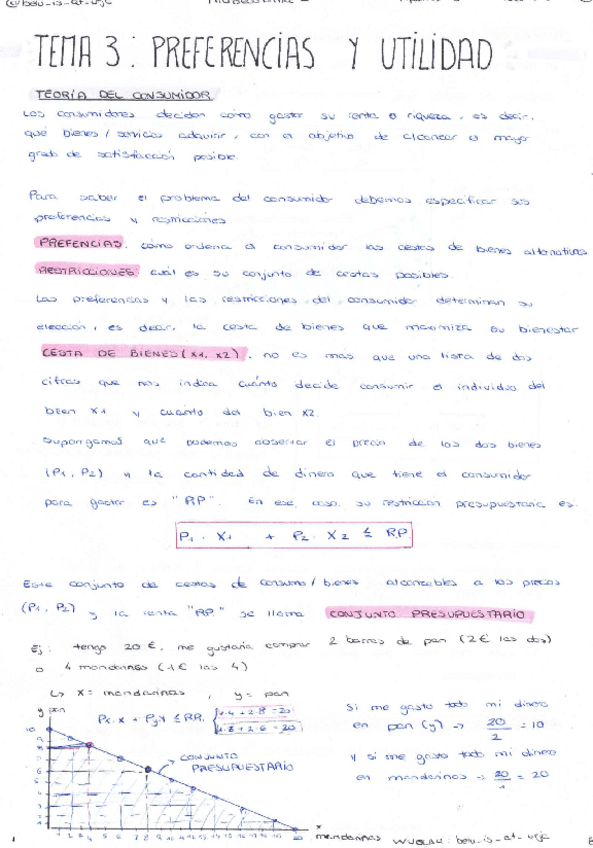 @belu_is_at_urjc
TEMA 3: PREFERENCIAS Y UTILIDAD
TEORÍA DEL CONSUMIDOR
Los consumidores deciden cómo gastar su renta o riqueza, es decir,
qué bienes / servicios adquirir, con el objetivo de alcanzar el mayor
grado de satisfacción posible.
Para saber el problema del consumidor debemos especificar sus
preferencias y restricciones.
PREFENCIAS: cómo ordena el consumidor las cestas de bienes alternativas
RESTRICCIONES: cuál es su conjunto de cestas posibles.
Las preferencias y las restricciones del consumidor determinan su
elección, es decir, la cesta de bienes que maximiza su bienestar
CESTA DE BIENES (X1, X2), no es más que una lista de dos
cifras que nos indica cuánto decide consumir el individuo del
bien X1 y cuánto del bien X2.
Supongamos que podemos observar el precio de los dos bienes
(P1, P2) y la cantidad de dinero que tiene el consumidor
para gastar es "RP". En ese caso, su restricción presupuestaria es:
P1 · X1 + P2 · X2 ≤ RP.
Este conjunto de cestas de consumo / bienes alcanzables a los precios
(P1, P2) y la renta "RP." se llama CONJUNTO PRESUPUESTARIO
Ej: tengo 20 €, me gustaría comprar 2 barras de pan (2€ las dos)
o 4 mandarinas (1€ las 4)
↳ X = mandarinas, y = pan
Px · X + Py Y ≤ RP. 1·4 + 2·8 = 20
1·8 + 2·6 = 20
Si me gasto todo mi dinero
en pan (y) → 20/2 = 10
Y si me gasto todo mi dinero
en mandarinas → 20/1 = 20
y pan
CONJUNTO
PRESUPUESTARIO
x
mandarinas
WUOLAH: belu_is_at_urjc